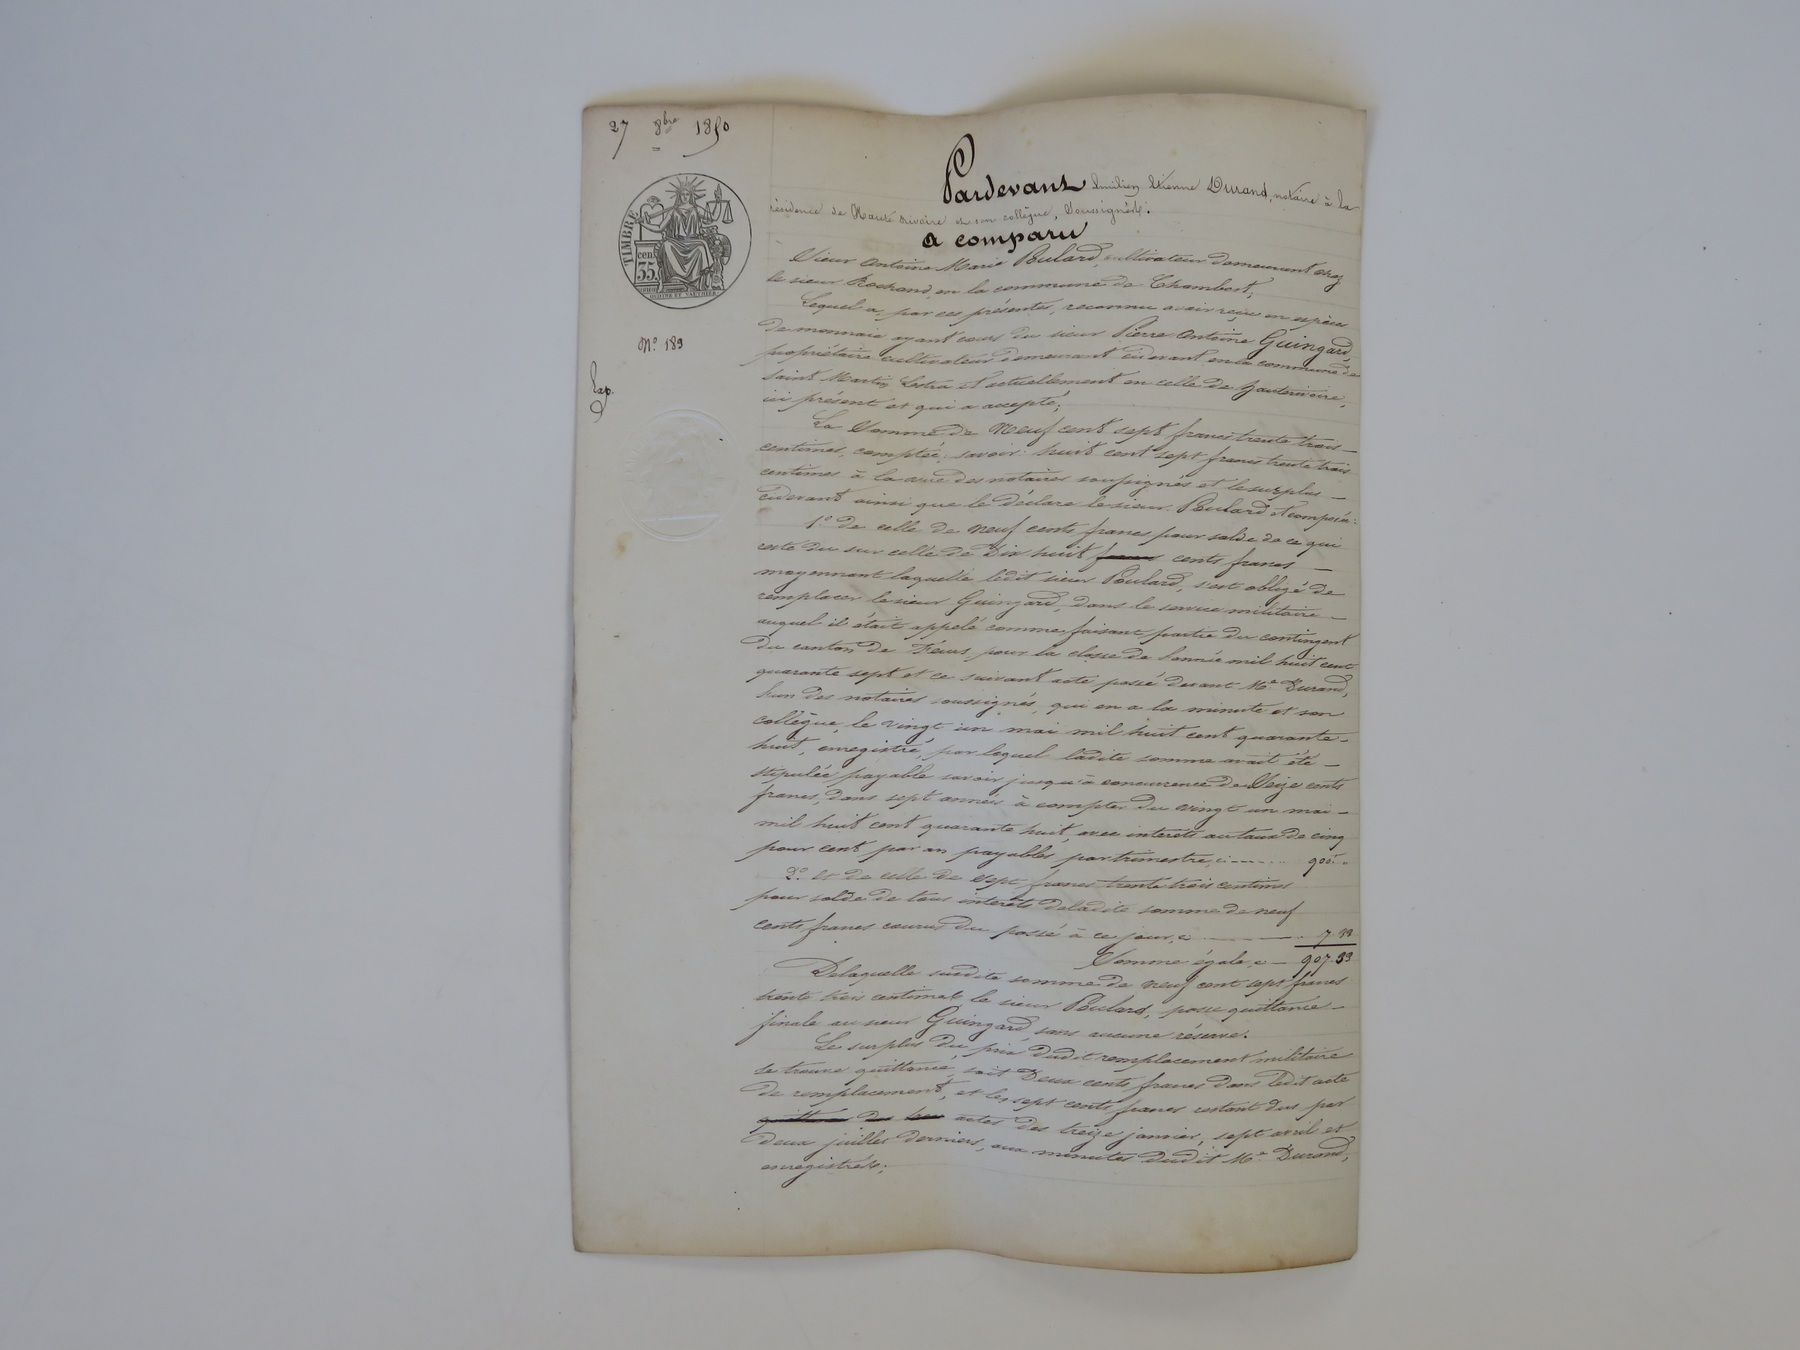 27 8bre 1850
TIMBRE
cen.
35
N° 189
Exp.
Pardevant Emilien Etienne Durand, notaire à la
résidence de Haute rivoire et son collègue, Soussignés.
a comparu
Sieur Antoine Marie Poulard, cultivateur demeurant chez
le sieur en la commune de Chambost,
Lequel a, par ces présentes, reconnu avoir reçu en espèces
de monnaie ayant cours du sieur Pierre Antoine Guingard,
propriétaire cultivateur demeurant cidevant en la commune de
Saint Martin Lestra et actuellement en celle de hauterivoire,
ici présent et qui a accepté;
La Somme de Neuf cent sept francs trente trois
centimes, comptée, savoir: huit cent sept francs trente trois
centimes à la vue des notaires soussignés et le surplus
cidevant ainsi que le déclare le sieur Poulard et composée:
1° de celle de neuf cents francs pour solde de ce qui
reste du sur celle de Dix huit francs cents francs
moyennant laquelle ledit sieur Poulard, s'est obligé de
remplacer le sieur Guingard, dans le service militaire
auquel il était appelé comme faisant partie du contingent
du canton de Feurs pour la classe de l'année mil huit cent
quarante sept et ce suivant acte passé devant Me Durand,
l'un des notaires soussignés, qui en a la minute et son
collègue, le vingt un mai mil huit cent quarante-
huit, enregistré, par lequel ladite somme avait été
stipulée payable savoir jusqu'à concurrence de Seize cents
francs, dans sept années à compter du vingt un mai
mil huit cent quarante huit, avec intérêts au taux de cinq
pour cent par an payables par trimestre, ci 900 "
2° et de celle de Sept francs trente trois centimes
pour solde de tous intérêts de ladite somme de neuf
cents francs courus du passé à ce jour, ci 7 33
Somme égale, ci 907 33
De laquelle susdite somme de neuf cent sept francs
trente trois centimes, le sieur Poulard, passe quittance
finale au sieur Guingard, sans aucune réserve.
Le surplus du prix dudit remplacement militaire
se trouve quittancé, soit Deux cents francs dans ledit acte
de remplacement, et les sept cents francs restant dus par
actes des treize janvier, sept avril et
deux juillet derniers, aux minutes dudit Me Durand,
enregistrés;